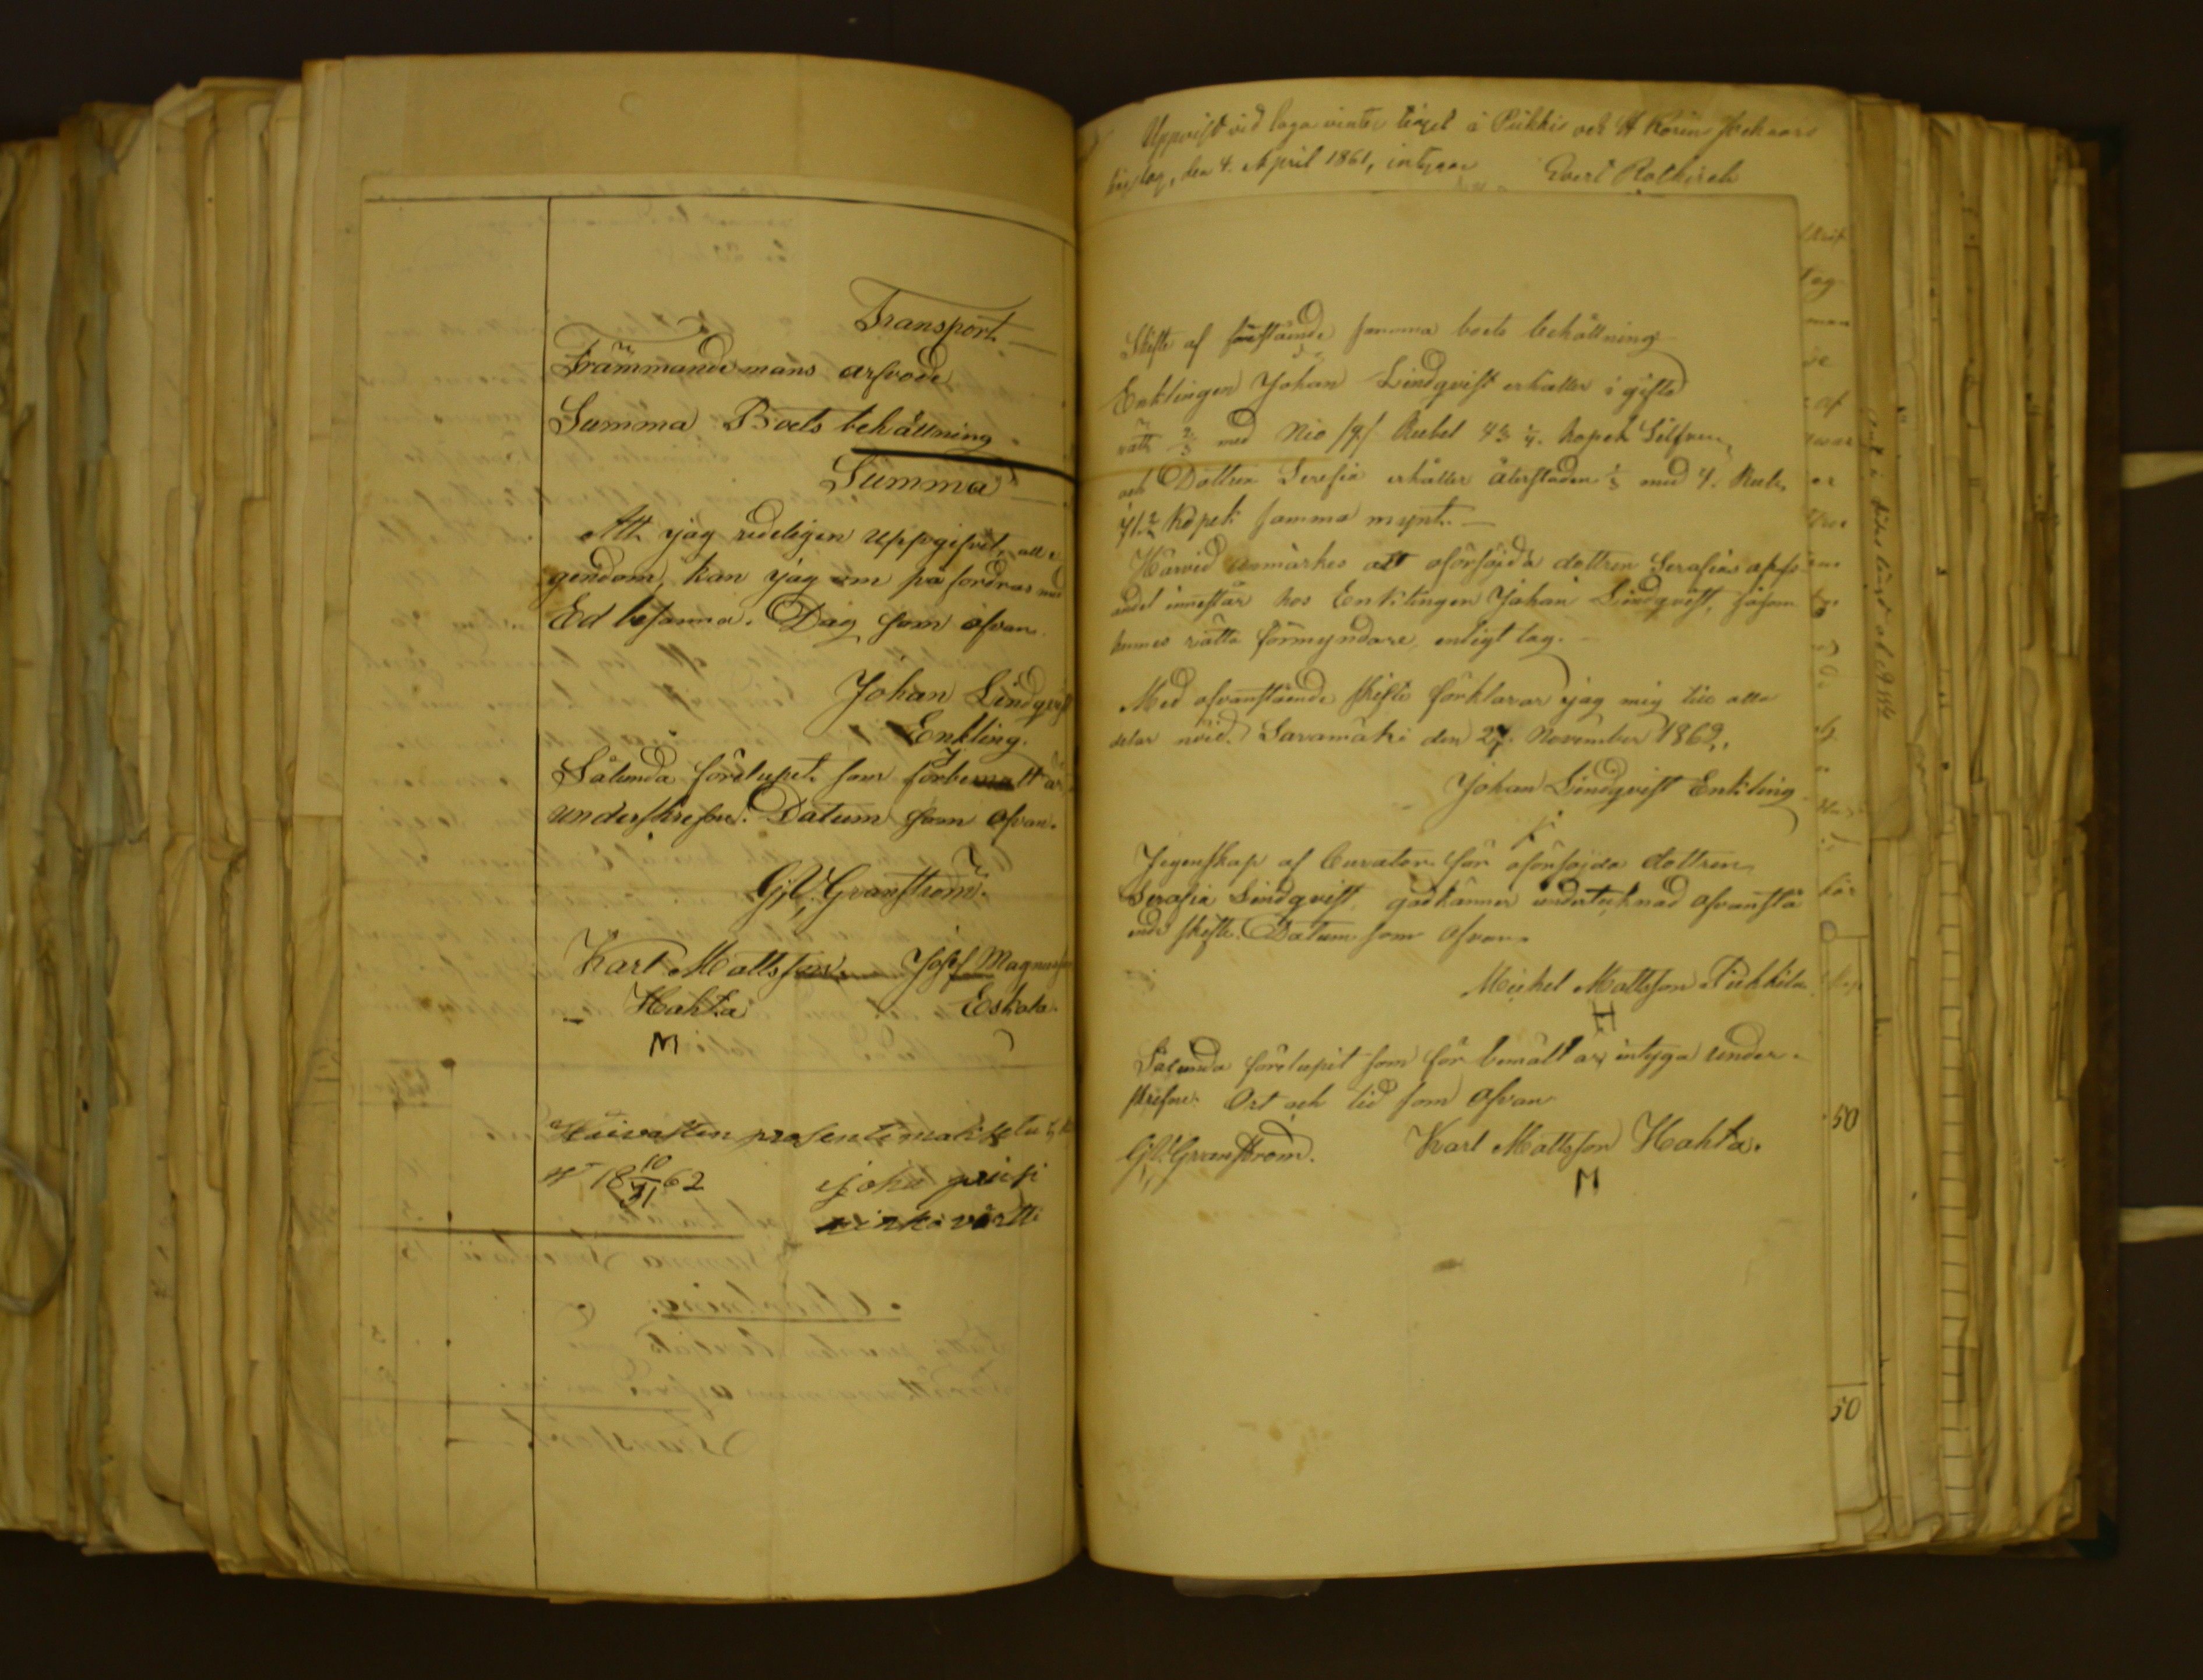 Transport
Främmande mans arfvode
Summa Boets behållning
Summa
Att jag redeligen uppgifvit, all e-
gendom, kan jag om på fordras med
Ed besanna. Dag som ofvan.
Johan Lindqvist
Enkling.
Sålunda förelupet som förbemalt är
underskrefvne. Datum som ofvan.
G. V. Granström.
Karl Mattsson Josef Magnusson
Hahka Eskola.
M
Häivasten presentema
18 10/31 62 Joha
Uppvist vid laga vinter tinget i Piikkis och St Karins Sochnars
tingslag, den 4. April 1861, intygar Evert Rotkirch
Skifte af förestående samma boets behållning
Enklingen Johan Lindqvist erhåller i gifto
rätt 2/3 med Nio /9/ Rubel 42 2/4. kopek Silfver,
och Dottren Serafia erhåller återstoden 1/3 med 4. Rub.
71.2 Kopek samma mynt.
Härvid anmärkes att oförsöjda dottren Serafias arfs
andel innestår hos Enklingen Johan Lindqvist, såsom
hennes rätta förmyndare, enligt lag.
Med ofvanstående skifte förklarar jag mig till alla
delar nöjd. Savamäki den 27. November 1862.
Johan Lindqvist Enkling
J egenskap af Curator för oförsöjda dottren
Serafia Lindqvist, godkänner undertecknad ofvanstå
ende skifte. Datum som ofvan.
Mickel Mattsson Pukkila
H
Sålunda förelupit som för bemält är, intyga under-
skrefvne. Ort och tid som ofvan
G. V. Granström. Karl Mattsson Hahka.
M
50
50